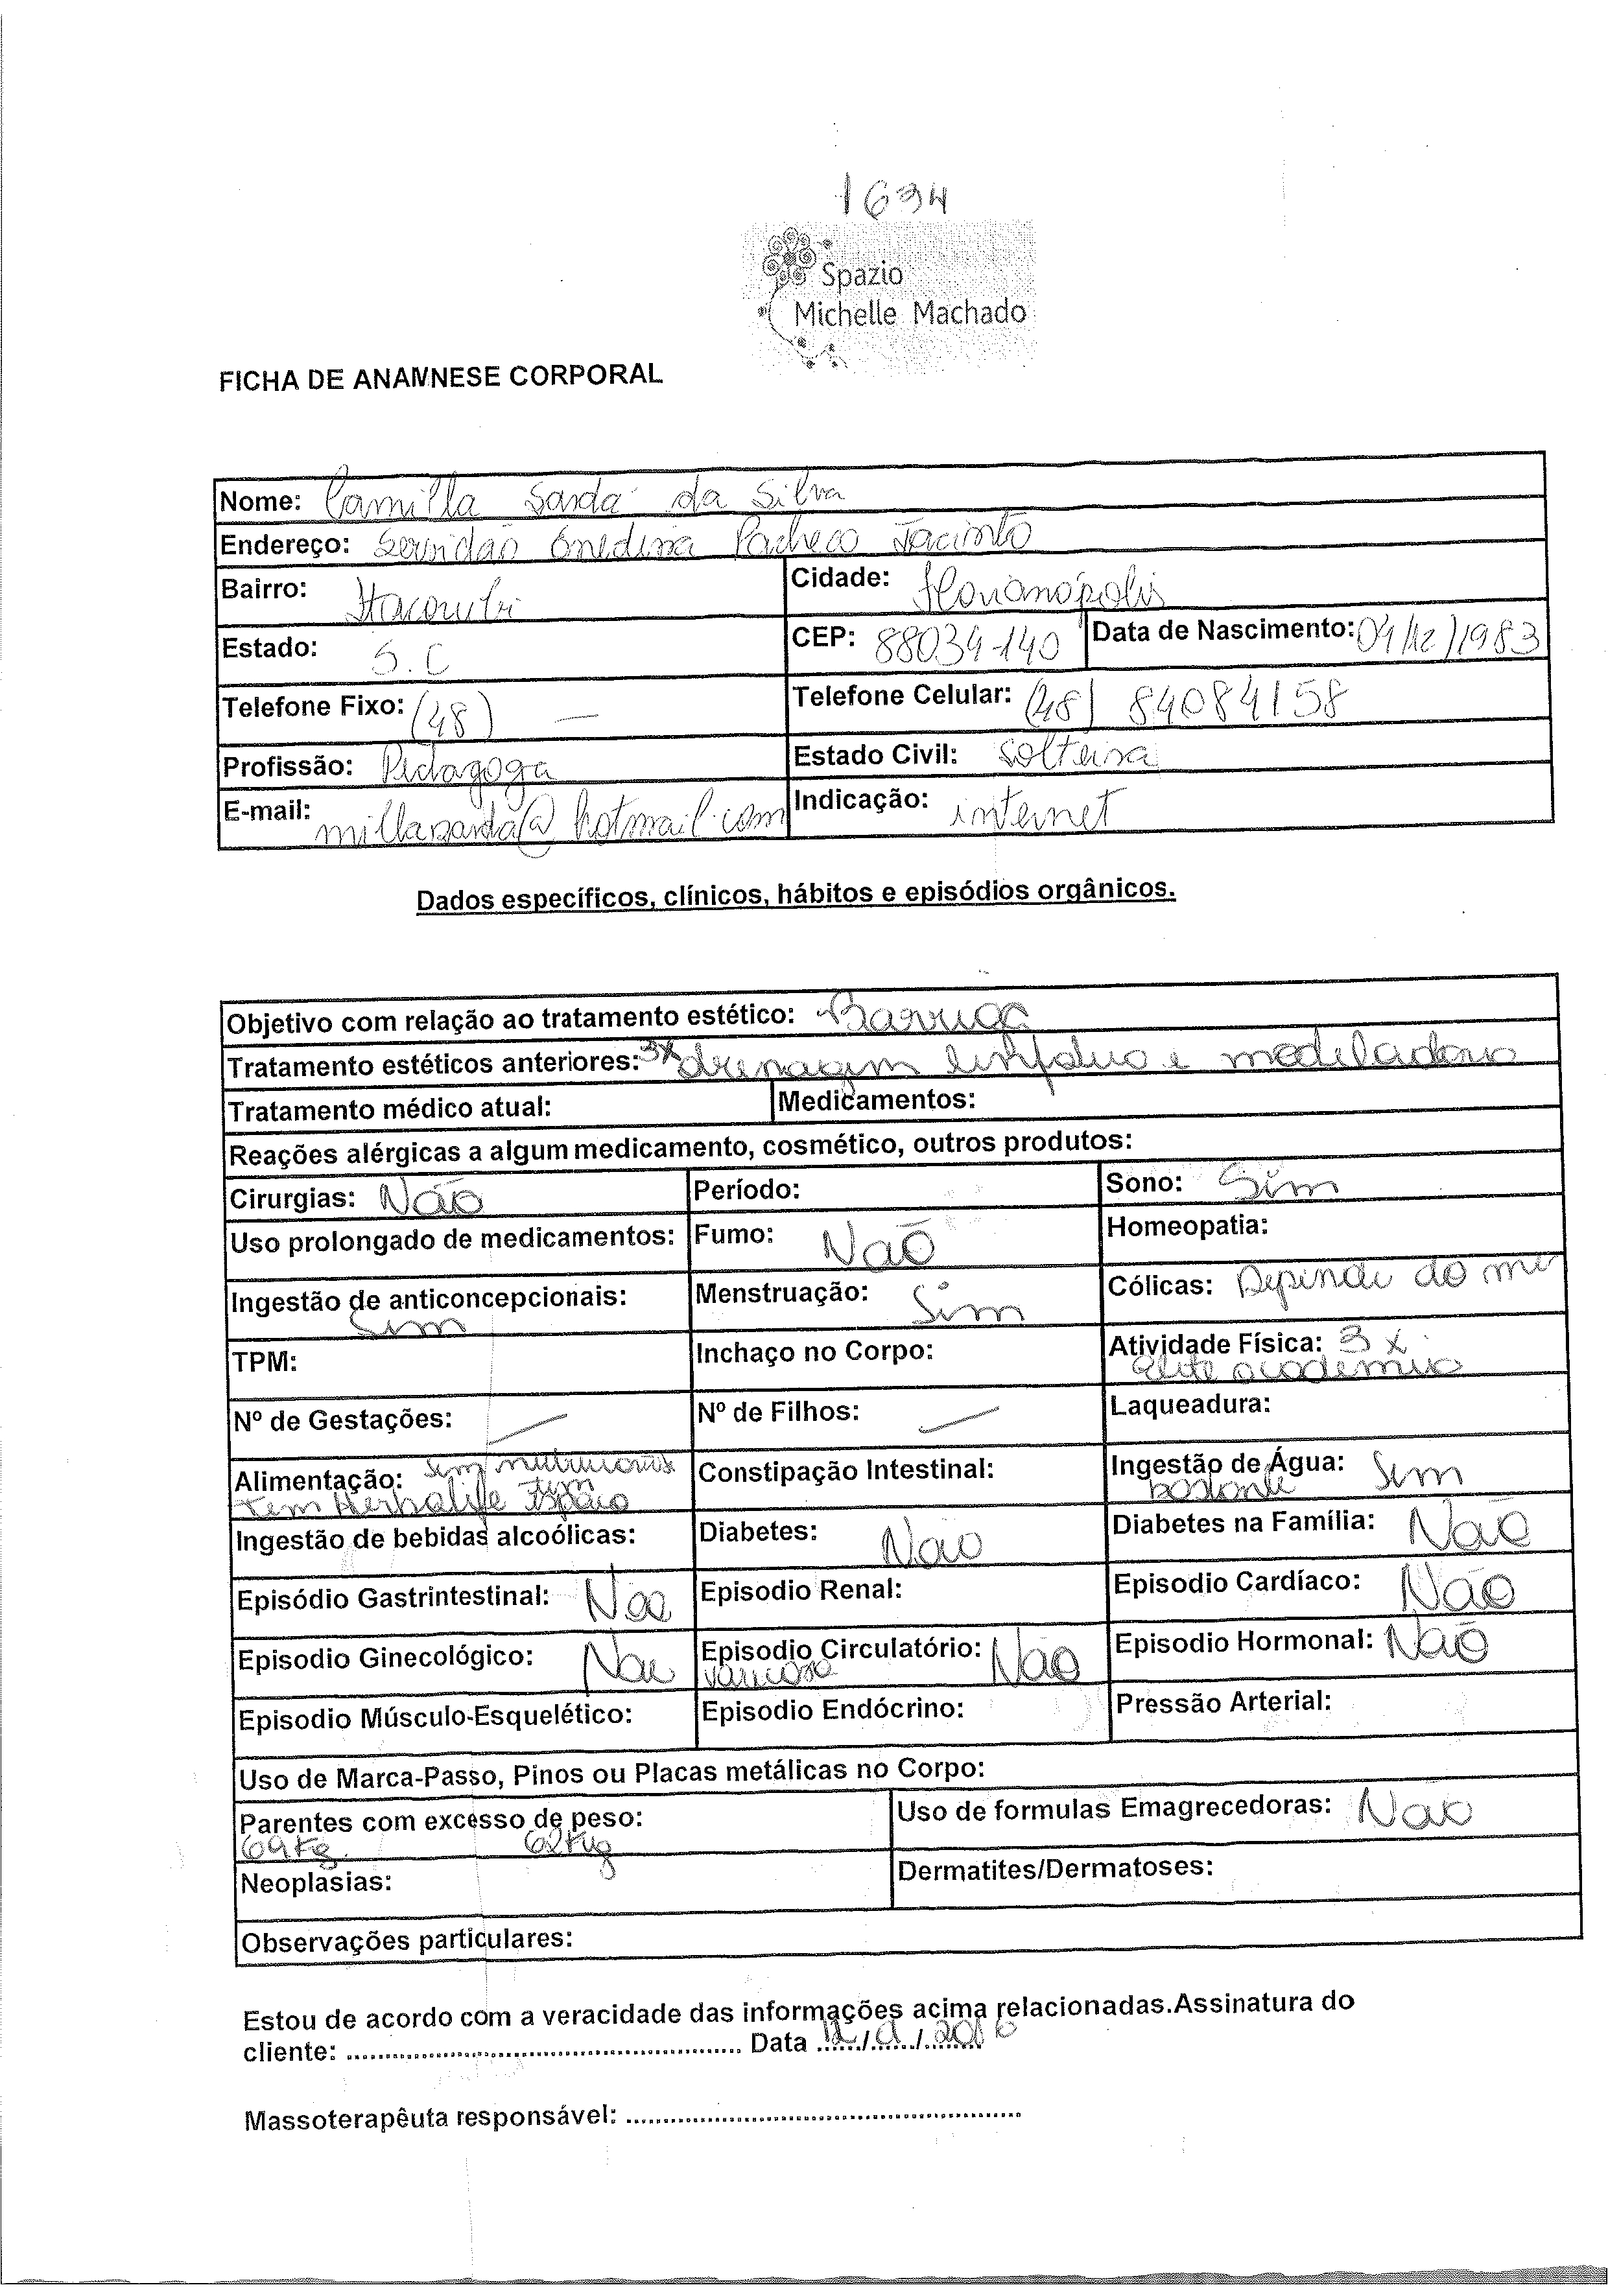 1634
Spazio
Michelle Machado
FICHA DE ANAMNESE CORPORAL
Nome: Camilla Sardá da Silva
Endereço: Servidão Onedina Pacheco Jacinto
Bairro: Itacorubi Cidade: Florianópolis
Estado: S.C CEP: 88034-140 Data de Nascimento: 04/12/1983
Telefone Fixo: (48) — Telefone Celular: (48) 84084158
Profissão: Pedagoga Estado Civil: Solteira
E-mail: millasarda@hotmail.com Indicação: internet
Dados específicos, clínicos, hábitos e episódios orgânicos.
Objetivo com relação ao tratamento estético: Barriga
Tratamento estéticos anteriores: 3x drenagem linfatica e modeladora
Tratamento médico atual: Medicamentos:
Reações alérgicas a algum medicamento, cosmético, outros produtos:
Cirurgias: Não Período: Sono: Sim
Uso prolongado de medicamentos: Fumo: Não Homeopatia:
Ingestão de anticoncepcionais: Sim Menstruação: Sim Cólicas: Depende do mes
TPM: Inchaço no Corpo: Atividade Física: 3x
elite academia
Nº de Gestações: — Nº de Filhos: — Laqueadura:
Alimentação: sem nutricionista Constipação Intestinal: Ingestão de Água: Sim
tem Herbalife tem Espaço bastante
Ingestão de bebidas alcoólicas: Diabetes: Não Diabetes na Família: Não
Episódio Gastrintestinal: Nao Episodio Renal: Episodio Cardíaco: Não
Episodio Ginecológico: Nao Episodio Circulatório: Não Episodio Hormonal: Não
varicosa
Episodio Músculo-Esquelético: Episodio Endócrino: Pressão Arterial:
Uso de Marca-Passo, Pinos ou Placas metálicas no Corpo:
Parentes com excesso de peso: Uso de formulas Emagrecedoras: Nao
69kg. 62kg
Neoplasias: Dermatites/Dermatoses:
Observações particulares:
Estou de acordo com a veracidade das informações acima relacionadas.Assinatura do
cliente: ........ Data 12/01/2016
Massoterapêuta responsável: ........